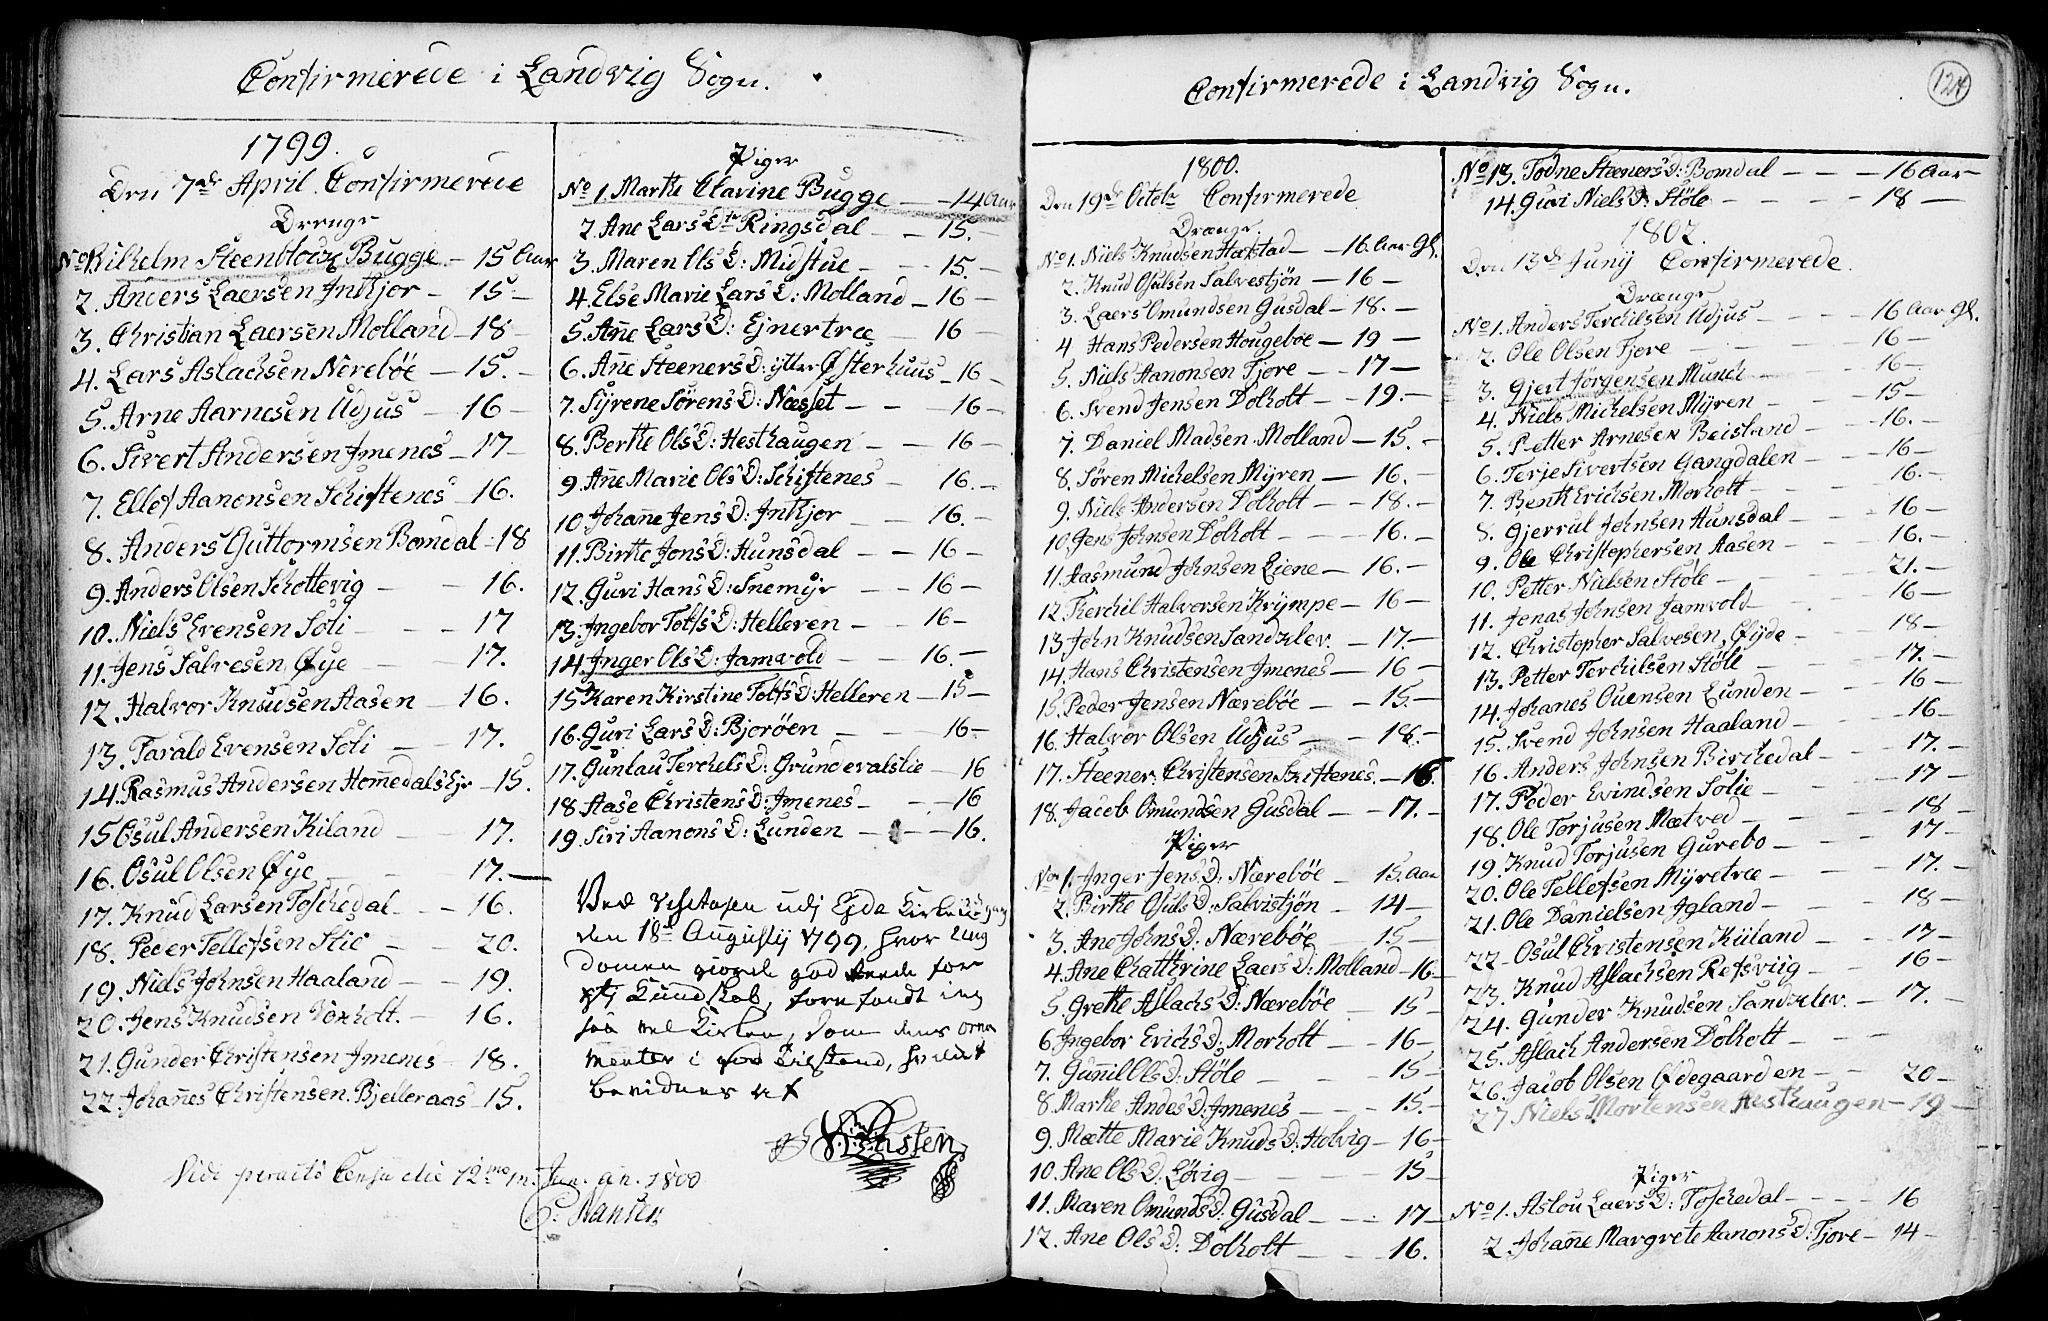 Confirmerede i Landvig Sogn.
1799.
Den 7de April Confirmerede
Drenge
No 1. Vilhelm Steenblock Bugge - 15 Aar
2. Anders Laersen Inthjor - 15 -
3. Christian Laersen Molland - 18 -
4. Lars Aslachsen Nereböe - 15. -
5. Arne Aarnesen Udjus - 16 -
6. Sivert Andersen Imenes - 17 -
7. Ellef Aanonsen Schiftenes - 16.
8. Anders Guttormsen Bomdal - 18
9. Anders Olsen Schottevig - - 16.
10. Niels Evensen Soli - - - 17
11. Jens Salvesen Øye - - 17.
12. Halvor Knudsen Aasen - 16.
13. Tarald Evensen Soli - - 17.
14. Rasmus Andersen Homedals - 15.
15 Osul Andersen Kiland - - 17.
16. Osul Olsen Øye - - 17. -
17. Knud Larsen Toschedal - - 16.
18. Peder Tellefsen Stie - - 20.
19. Niels Johnsen Haaland - - 19.
20. Jens Knudsen - 16.
21. Gunder Christensen Imenes - 18.
22. Johañes Christensen Bjelleraas - 15.
Vidi peracto Censu die 12mo m. Jun. an. 1800
Hansen
Piger
No 1. Marthe Clavine Bugge - - 14 Aar
2. Ane Lars Dtr Ringsdal - - 15. -
3. Maren Ols D: Midstue - - 15. -
4. Else Marie Lars D: Molland - 16 -
5. Añe Lars D: Ejnertræ - 16 -
6. Añe Steeners D: ytter Østerhuus - 16 -
7. Syrene Sörens D: Næsset - - - 16 -
8. Berthe Ols D: Hesthaugen - - 16 -
9. Añe Marie Ols D: Schiftenes - - 16. -
10. Johañe Jens D: Inthjor - - 16. -
11. Birthe Jons D: Hunsdal - - 16 -
12. Guri Hans D: Snemyr - - 16 -
13. Ingebor Tolfs D: Helleren - - 16 -
14. Inger Ols D: Jamvold - - 16. -
15 Karen Kirstine Tolfs D: Helleren - 15 -
16. Guri Lars D: Bjoröen - - - 16 -
17. Gunlau Terchels D: Grundevatslie - 16
18 Aase Christens D: Imenes - - - 16
19. Siri Aanons D: Lunden - - - 16.
Ved Visitasen udj Eyde Kirke
den 18de Augustij 1799, hvor Ung
domen giorde god rede for
sin Kundskab, forefandt ieg
saa vel Kirken, som dens orna
menter i god Tilstand, hvilket
bevidnes af
Confirmerede i Landvig Sogn.
124
1800.
Den 19de Octobr Confirmerede
Drænge
No 1. Niels Knudsen - - 16. Aar Gl.
2. Knud Osulsen Salvestjön - 16 -
3. Laers Omundsen Gusdal - 18. -
4 Hans Pedersen Hougeboe - 19 -
5. Niels Aanonsen Fjore - - 17 -
6. Svend Jensen Dolholt - - 19. -
7. Daniel Madsen Molland - 15. -
8. Sören Michelsen Myren - 16. -
9. Niels Andersen Dolholt - - 18. -
10. Jens Johnsen Dolholt - - - - 16. -
11. Aasmund Johnsen Liene - 16. -
12. Terchil Halvorsen Krympe - 16 -
13. John Knudsen Sandklev. - 17. -
14. Hans Christensen Imenes - 16 -
15. Peder Jensen Næreböe - - 15. -
16. Halvor Olsen Udjus - - 18. -
17. Steener Christensen Skiftenes. - 16.
18. Jacob Omundsen Gusdal - - 17. -
Piger
No 1. Inger Jens D: Næreböe - 15. Aar
2. Birthe Osuls D: Salvistjön - 14 -
3. Ane Johns D: Næreböe - 15 -
4. Ane Chathrine Laers D: Molland - 16 -
5. Grethe Aslachs D: Nærebøe - 15 -
6. Ingebor Erichs D: Morholt - 16 -
7. Gunil Ols D: Stöle - - - 15 -
8. Marthe Andes D: Imenes - - - 15. -
9. Mætte Marie Knuds D: Holvig - 16 -
10. Ane Ols D: Lövig - - - 15 -
11. Maren Omunds D: Gusdal - - - 17 -
12. Ane Ols D: Dolholt - - - 16.
No 13. Todne Steeners D: Bomdal - - - 16 Aar
14. Guri Niels D: Stöle - - - - 18 -
1802.
Den 13de Junij Confirmerede.
Drænge
No 1. Anders Terchilsen Udjus - - - 16 Aar Gl.
2. Ole Olsen Fjore - - - 16 -
3. Gjert Jörgensen Munch - - 16 -
4. Niels Michelsen Myren - - 15 -
5. Petter Arnesen Beisland - - 16. -
6. Terje Sivertsen Gangdalen - - 16 -
7. Benth Erichsen Morholt - - 16. -
8. Gjerrul Johnsen Hunsdal - - 16 -
9. Ole Christophersen Aasen - - 16. -
10. Petter Nielsen Stöle - - - 21. -
11. Jonas Johnsen Jamvold - - 16 -
12. Christopher Salvesen Øyde - - 18 -
13. Petter Terchilsen Stöle - - 17. -
14. Johanes Ouensen Lunden - - 16 -
15. Svend Johnsen Haaland - - 16 -
16. Anders Johnsen Birchedal - - 17. -
17. Peder Evindsen Solie - - - 17 -
18. Ole Torjusen Mætved - - - 18 -
19. Knud Torjusen Gurebo - - 17 -
20. Ole Tellefsen Myretræ - - 17. -
21. Ole Danielsen Igland - - - 18 -
22 Osul Christensen Kiiland - - 17 -
23. Knud Aslachsen Refsviig - - 16 -
24. Gunder Knudsen Sandklev. - 17. -
25. Aslach Andersen Dolholt - - -
26. Jacob Olsen Ødegaarden - - 20 -
27 Niels Mortensen Hesthaugen - 19 -
Piger
No 1. Aslou Laers D: Toschedal - - - 16
2. Johañe Margrete Aanons D: Fjore - 14 -